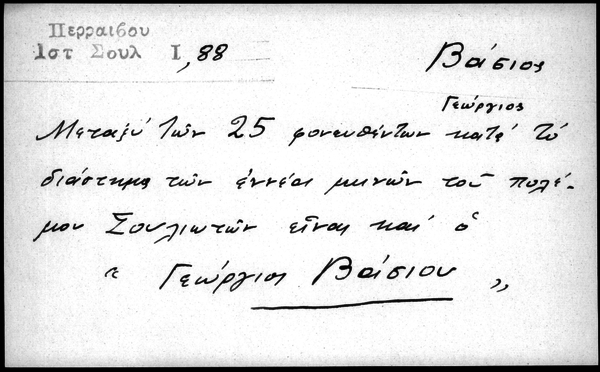 Περραιβου
Ιστ Σουλ Ι, 88
Βάσιος
Γεώργιος
Μεταξύ τῶν 25 φονευθέντων κατά τό
διάστημα τῶν ἐννέα μηνῶν τοῦ πολέ-
μου Σουλιωτῶν εἶναι καί ὁ
" Γεώργιος Βάσιου "